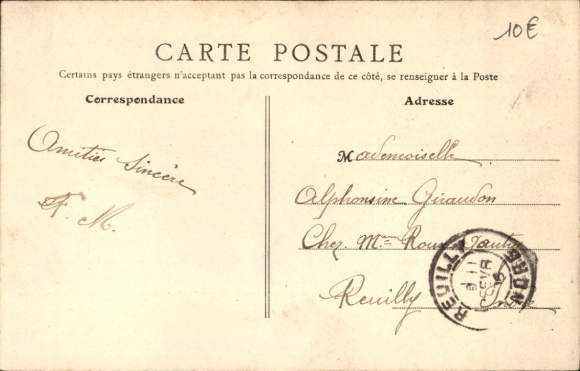 10€
CARTE POSTALE
Certains pays étrangers n'acceptant pas la correspondance de ce côté, se renseigner à la Poste
Correspondance
Adresse
Amitiés Sincère
M.
Mademoiselle
Alphonsine Giraudon
Chez Mme
Reuilly Indre
REUILLY
INDRE